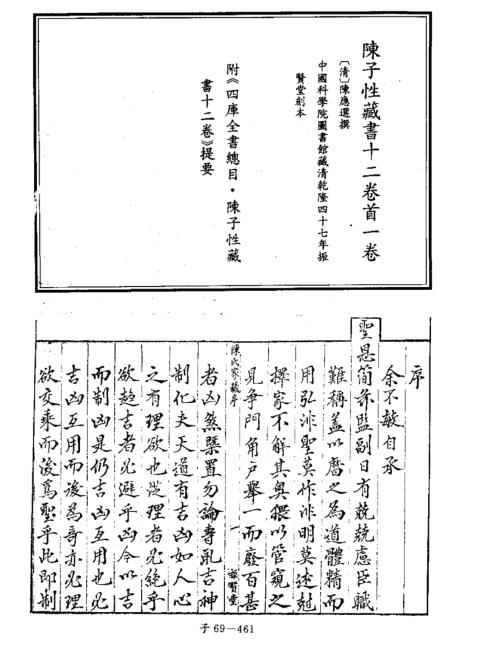 陳子性藏書十二卷首一卷
〔清〕陳應選撰
中國科學院圖書館藏清乾隆四十七年振
賢堂刻本
附《四庫全書總目·陳子性藏
書十二卷》提要
序
余不敏自承
聖恩簡畀監副日有兢兢慮臣職
難稱蓋以曆之為道體精而
用弘非聖莫作非明莫述愆
擇家不解其奧猥以管窺之
見爭門角户舉一而廢百甚
陳氏家藏序
一
振賢堂
者凶煞槩置勿論專亂吉神
制化夫天道有吉凶如人心
之有理欲也從理者必絕乎
欲趨吉者必避乎凶今以吉
而制凶是仍吉凶互用也必
吉凶互用而後為奇亦必理
欲交乘而後爲聖乎此即制
子69－461